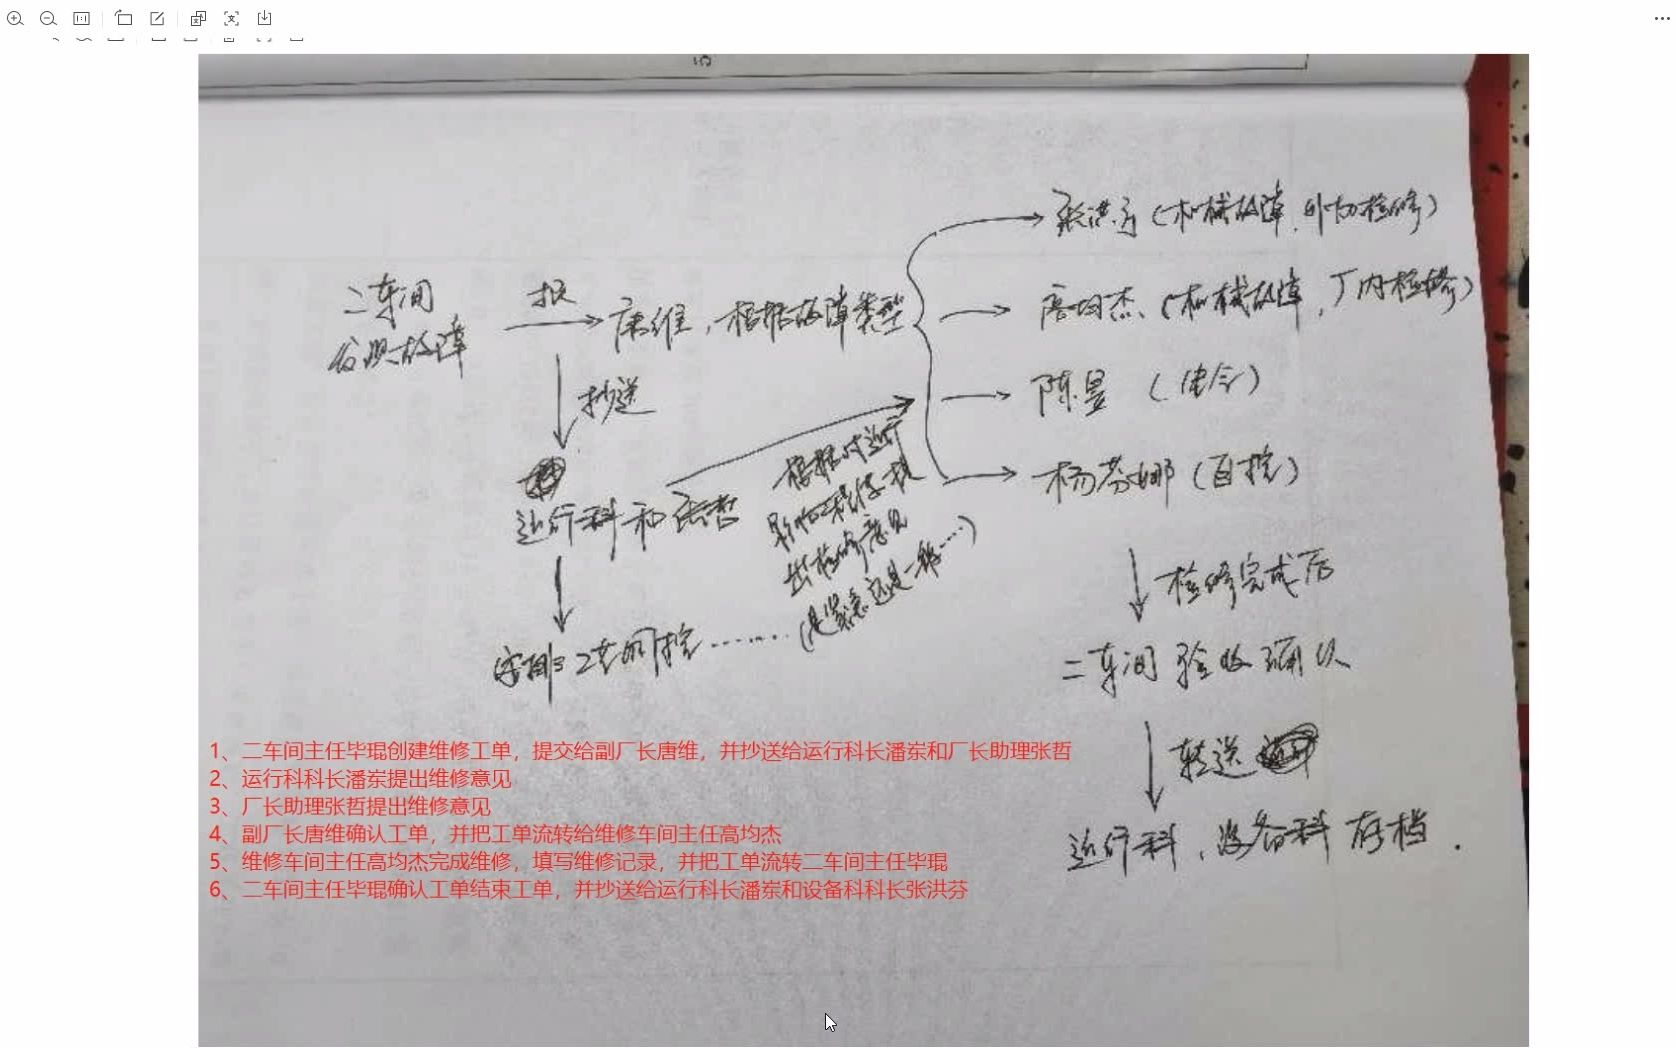 二车间
发现故障
报
唐维，根据故障类型
张洪芬（机械故障，外协检修）
高均杰、（机械故障，厂内检修）
陈昱（电气）
杨芬娜（自控）
抄送
运行科和张哲
根据对运行
影响程度提
出检修意见
（是紧急还是一般……）
检修完成后
二车间验收确认
转送
运行科、设备科存档.
1、二车间主任毕琨创建维修工单，提交给副厂长唐维，并抄送给运行科长潘岽和厂长助理张哲
2、运行科科长潘岽提出维修意见
3、厂长助理张哲提出维修意见
4、副厂长唐维确认工单，并把工单流转给维修车间主任高均杰
5、维修车间主任高均杰完成维修，填写维修记录，并把工单流转二车间主任毕琨
6、二车间主任毕琨确认工单结束工单，并抄送给运行科长潘岽和设备科科长张洪芬